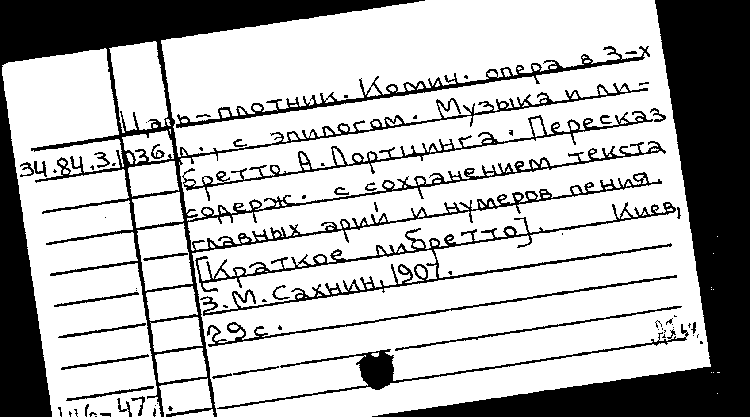 Царь-плотник. Комич. опера в 3-х
34.84.3.1036. д., с эпилогом. Музыка и ли-
бретто А. Лортцинга. Пересказ
содерж. с сохранением текста
главных арий и нумеров пения.
[Краткое либретто]. Киев,
З.М. Сахнин, 1907.
29 с.